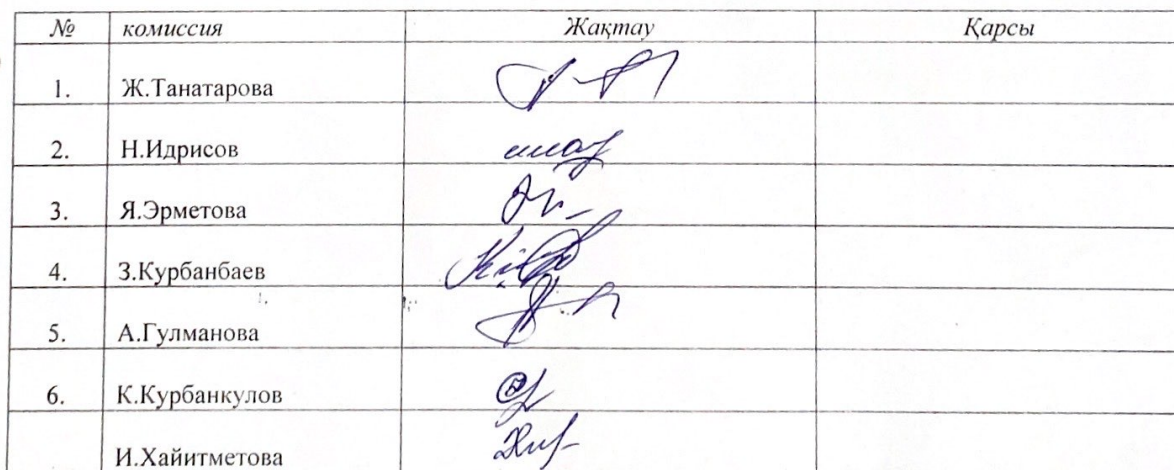 № комиссия Жақтау Қарсы
1. Ж.Танатарова
2. Н.Идрисов
3. Я.Эрметова
4. З.Курбанбаев
5. А.Гулманова
6. К.Курбанкулов
И.Хайитметова